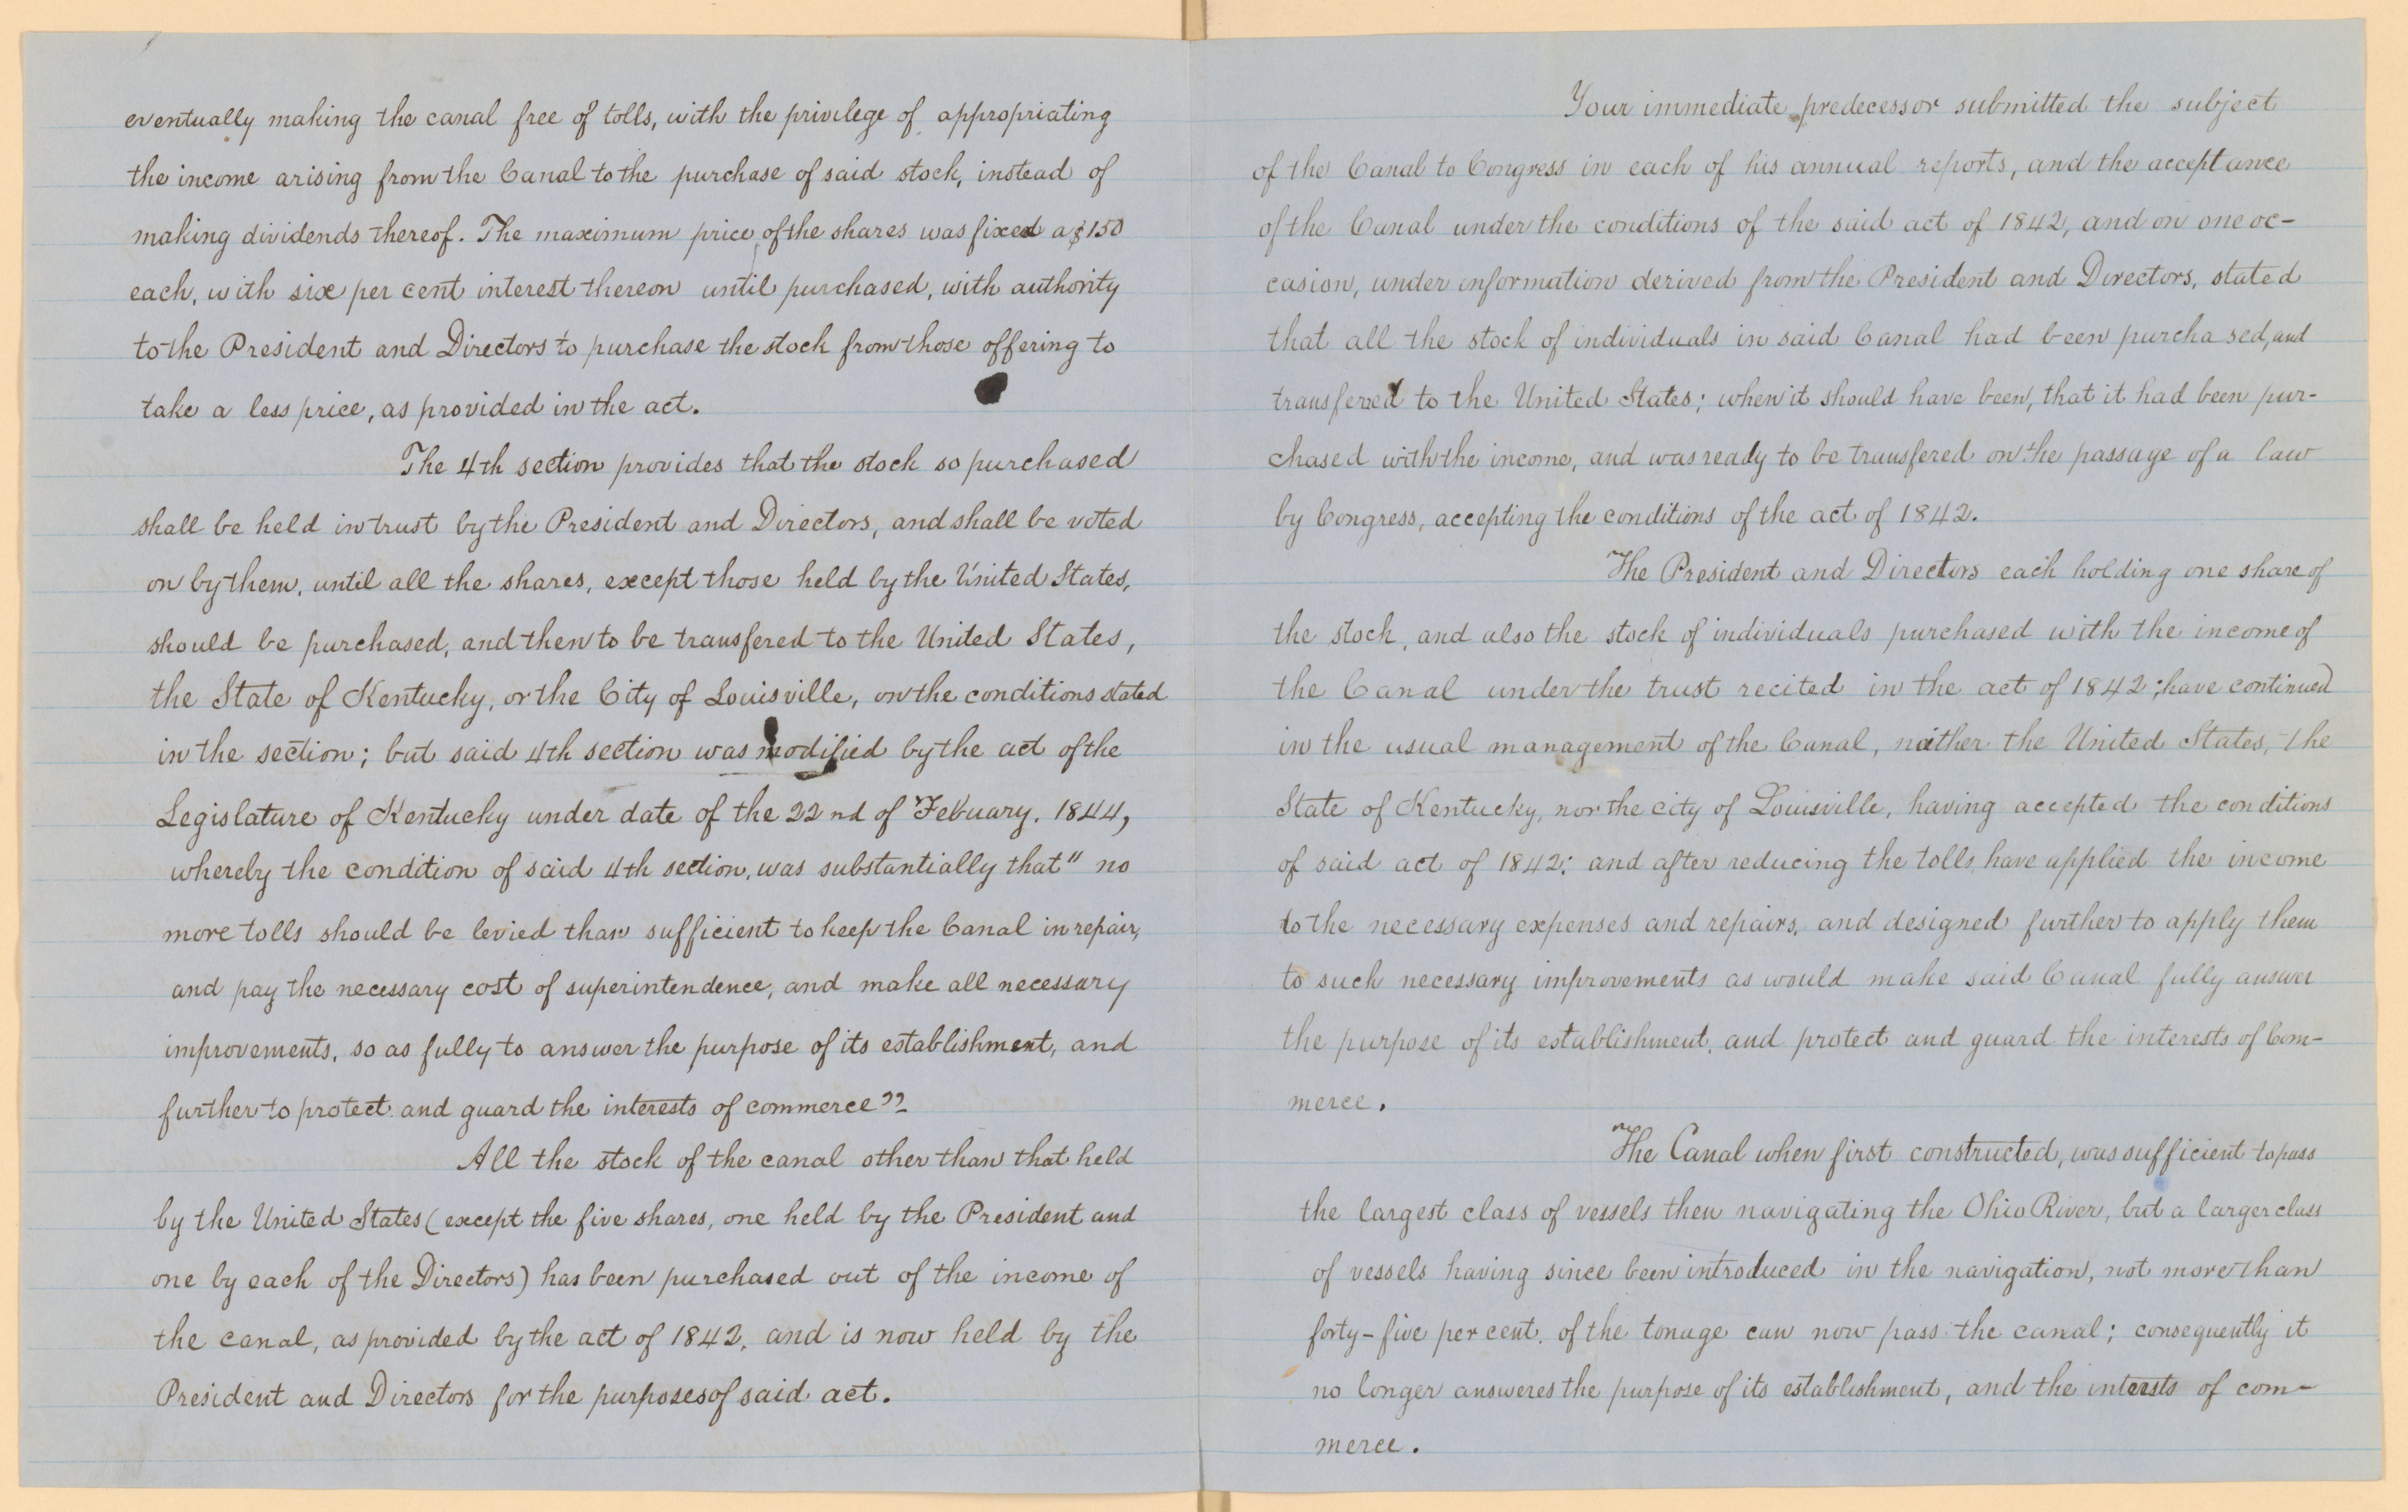 eventually making the canal free of tolls, with the privilege of appropriating
the income arising from the Canal to the purchase of said stock, instead of
making dividends thereof. The maximum price of the shares was fixed a $150
each, with six per cent interest thereon until purchased, with authority
to the President and Directors to purchase the stock from those offering to
take a less price, as provided in the act.
The 4th section provides that the stock so purchased
shall be held in trust by the President and Directors, and shall be voted
on by them, until all the shares, except those held by the United States,
should be purchased, and then to be transfered to the United States,
the State of Kentucky, or the City of Louisville, on the conditions stated
in the section; but said 4th section was modified by the act of the
Legislature of Kentucky under date of the 22nd of Febuary, 1844,
whereby the condition of said 4th section, was substantially that "no
more tolls should be levied than sufficient to keep the Canal in repair,
and pay the necessary cost of superintendence, and make all necessary
improvements, so as fully to answer the purpose of its establishment, and
further to protect and guard the interests of commerce"
All the stock of the canal other than that held
by the United States (except the five shares, one held by the President and
one by each of the Directors) has been purchased out of the income of
the canal, as provided by the act of 1842, and is now held by the
President and Directors for the purposes of said act.
Your immediate predecessor submitted the subject
of the Canal to Congress in each of his annual reports, and the acceptance
of the Canal under the conditions of the said act of 1842, and on one oc-
casion, under information derived from the President and Directors, stated
that all the stock of individuals in said Canal had been purchased, and
transfered to the United States; when it should have been, that it had been pur-
chased with the income, and was ready to be transfered on the passage of a law
by Congress, accepting the conditions of the act of 1842.
The President and Directors each holding one share of
the stock, and also the stock of individuals purchased with the income of
the Canal under the trust recited in the act of 1842; have continued
in the usual management of the Canal, neither the United States, the
State of Kentucky, nor the city of Louisville, having accepted the conditions
of said act of 1842; and after reducing the tolls, have applied the income
to the necessary expenses and repairs, and designed further to apply them
to such necessary improvements as would make said Canal fully answer
the purpose of its establishment, and protect and guard the interests of Com-
merce.
The Canal when first constructed, was sufficient to pass
the largest class of vessels then navigating the Ohio River, but a larger class
of vessels having since been introduced in the navigation, not more than
forty-five per cent. of the tonage can now pass the canal; consequently it
no longer answeres the purpose of its establishment, and the intersts of com-
merce.